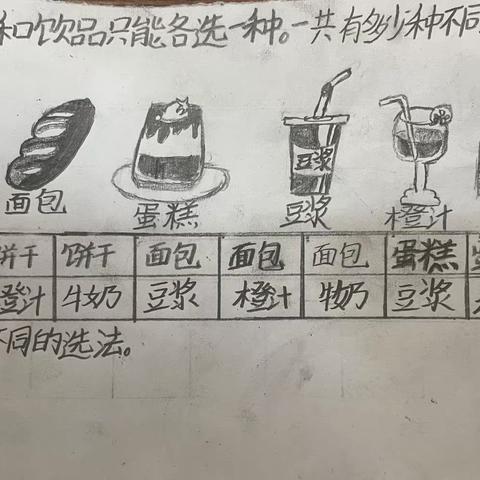 和饮品只能各选一种。一共有多少种不同
豆浆
面包 蛋糕 豆浆 橙汁
饼干 饼干 面包 面包 面包 蛋糕
橙汁 牛奶 豆浆 橙汁 牛奶 豆浆
不同的选法。